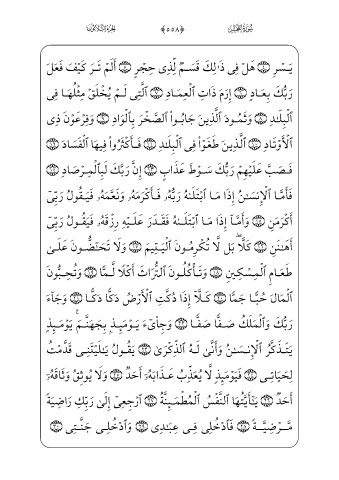 سُورَةُ الفَجْرِ ﴿٥٥٨﴾ الجُزءُ الثَّلَاثُونَ
يَسْرِ ۝٤ هَلْ فِى ذَٰلِكَ قَسَمٌ لِّذِى حِجْرٍ ۝٥ أَلَمْ تَرَ كَيْفَ فَعَلَ
رَبُّكَ بِعَادٍ ۝٦ إِرَمَ ذَاتِ الْعِمَادِ ۝٧ الَّتِى لَمْ يُخْلَقْ مِثْلُهَا فِى
الْبِلَٰدِ ۝٨ وَثَمُودَ الَّذِينَ جَابُوا۟ الصَّخْرَ بِالْوَادِ ۝٩ وَفِرْعَوْنَ ذِى
الْأَوْتَادِ ۝١٠ الَّذِينَ طَغَوْا۟ فِى الْبِلَٰدِ ۝١١ فَأَكْثَرُوا۟ فِيهَا الْفَسَادَ ۝١٢
فَصَبَّ عَلَيْهِمْ رَبُّكَ سَوْطَ عَذَابٍ ۝١٣ إِنَّ رَبَّكَ لَبِالْمِرْصَادِ ۝١٤
فَأَمَّا الْإِنسَٰنُ إِذَا مَا ابْتَلَىٰهُ رَبُّهُۥ فَأَكْرَمَهُۥ وَنَعَّمَهُۥ فَيَقُولُ رَبِّىٓ
أَكْرَمَنِ ۝١٥ وَأَمَّآ إِذَا مَا ابْتَلَىٰهُ فَقَدَرَ عَلَيْهِ رِزْقَهُۥ فَيَقُولُ رَبِّىٓ
أَهَٰنَنِ ۝١٦ كَلَّا ۖ بَل لَّا تُكْرِمُونَ الْيَتِيمَ ۝١٧ وَلَا تَحَٰٓضُّونَ عَلَىٰ
طَعَامِ الْمِسْكِينِ ۝١٨ وَتَأْكُلُونَ التُّرَاثَ أَكْلًا لَّمًّا ۝١٩ وَتُحِبُّونَ
الْمَالَ حُبًّا جَمًّا ۝٢٠ كَلَّآ إِذَا دُكَّتِ الْأَرْضُ دَكًّا دَكًّا ۝٢١ وَجَآءَ
رَبُّكَ وَالْمَلَكُ صَفًّا صَفًّا ۝٢٢ وَجِا۟ىٓءَ يَوْمَئِذٍۭ بِجَهَنَّمَ ۚ يَوْمَئِذٍ
يَتَذَكَّرُ الْإِنسَٰنُ وَأَنَّىٰ لَهُ الذِّكْرَىٰ ۝٢٣ يَقُولُ يَٰلَيْتَنِى قَدَّمْتُ
لِحَيَاتِى ۝٢٤ فَيَوْمَئِذٍ لَّا يُعَذِّبُ عَذَابَهُۥٓ أَحَدٌ ۝٢٥ وَلَا يُوثِقُ وَثَاقَهُۥٓ
أَحَدٌ ۝٢٦ يَٰٓأَيَّتُهَا النَّفْسُ الْمُطْمَئِنَّةُ ۝٢٧ ارْجِعِىٓ إِلَىٰ رَبِّكِ رَاضِيَةً
مَّرْضِيَّةً ۝٢٨ فَادْخُلِى فِى عِبَٰدِى ۝٢٩ وَادْخُلِى جَنَّتِى ۝٣٠